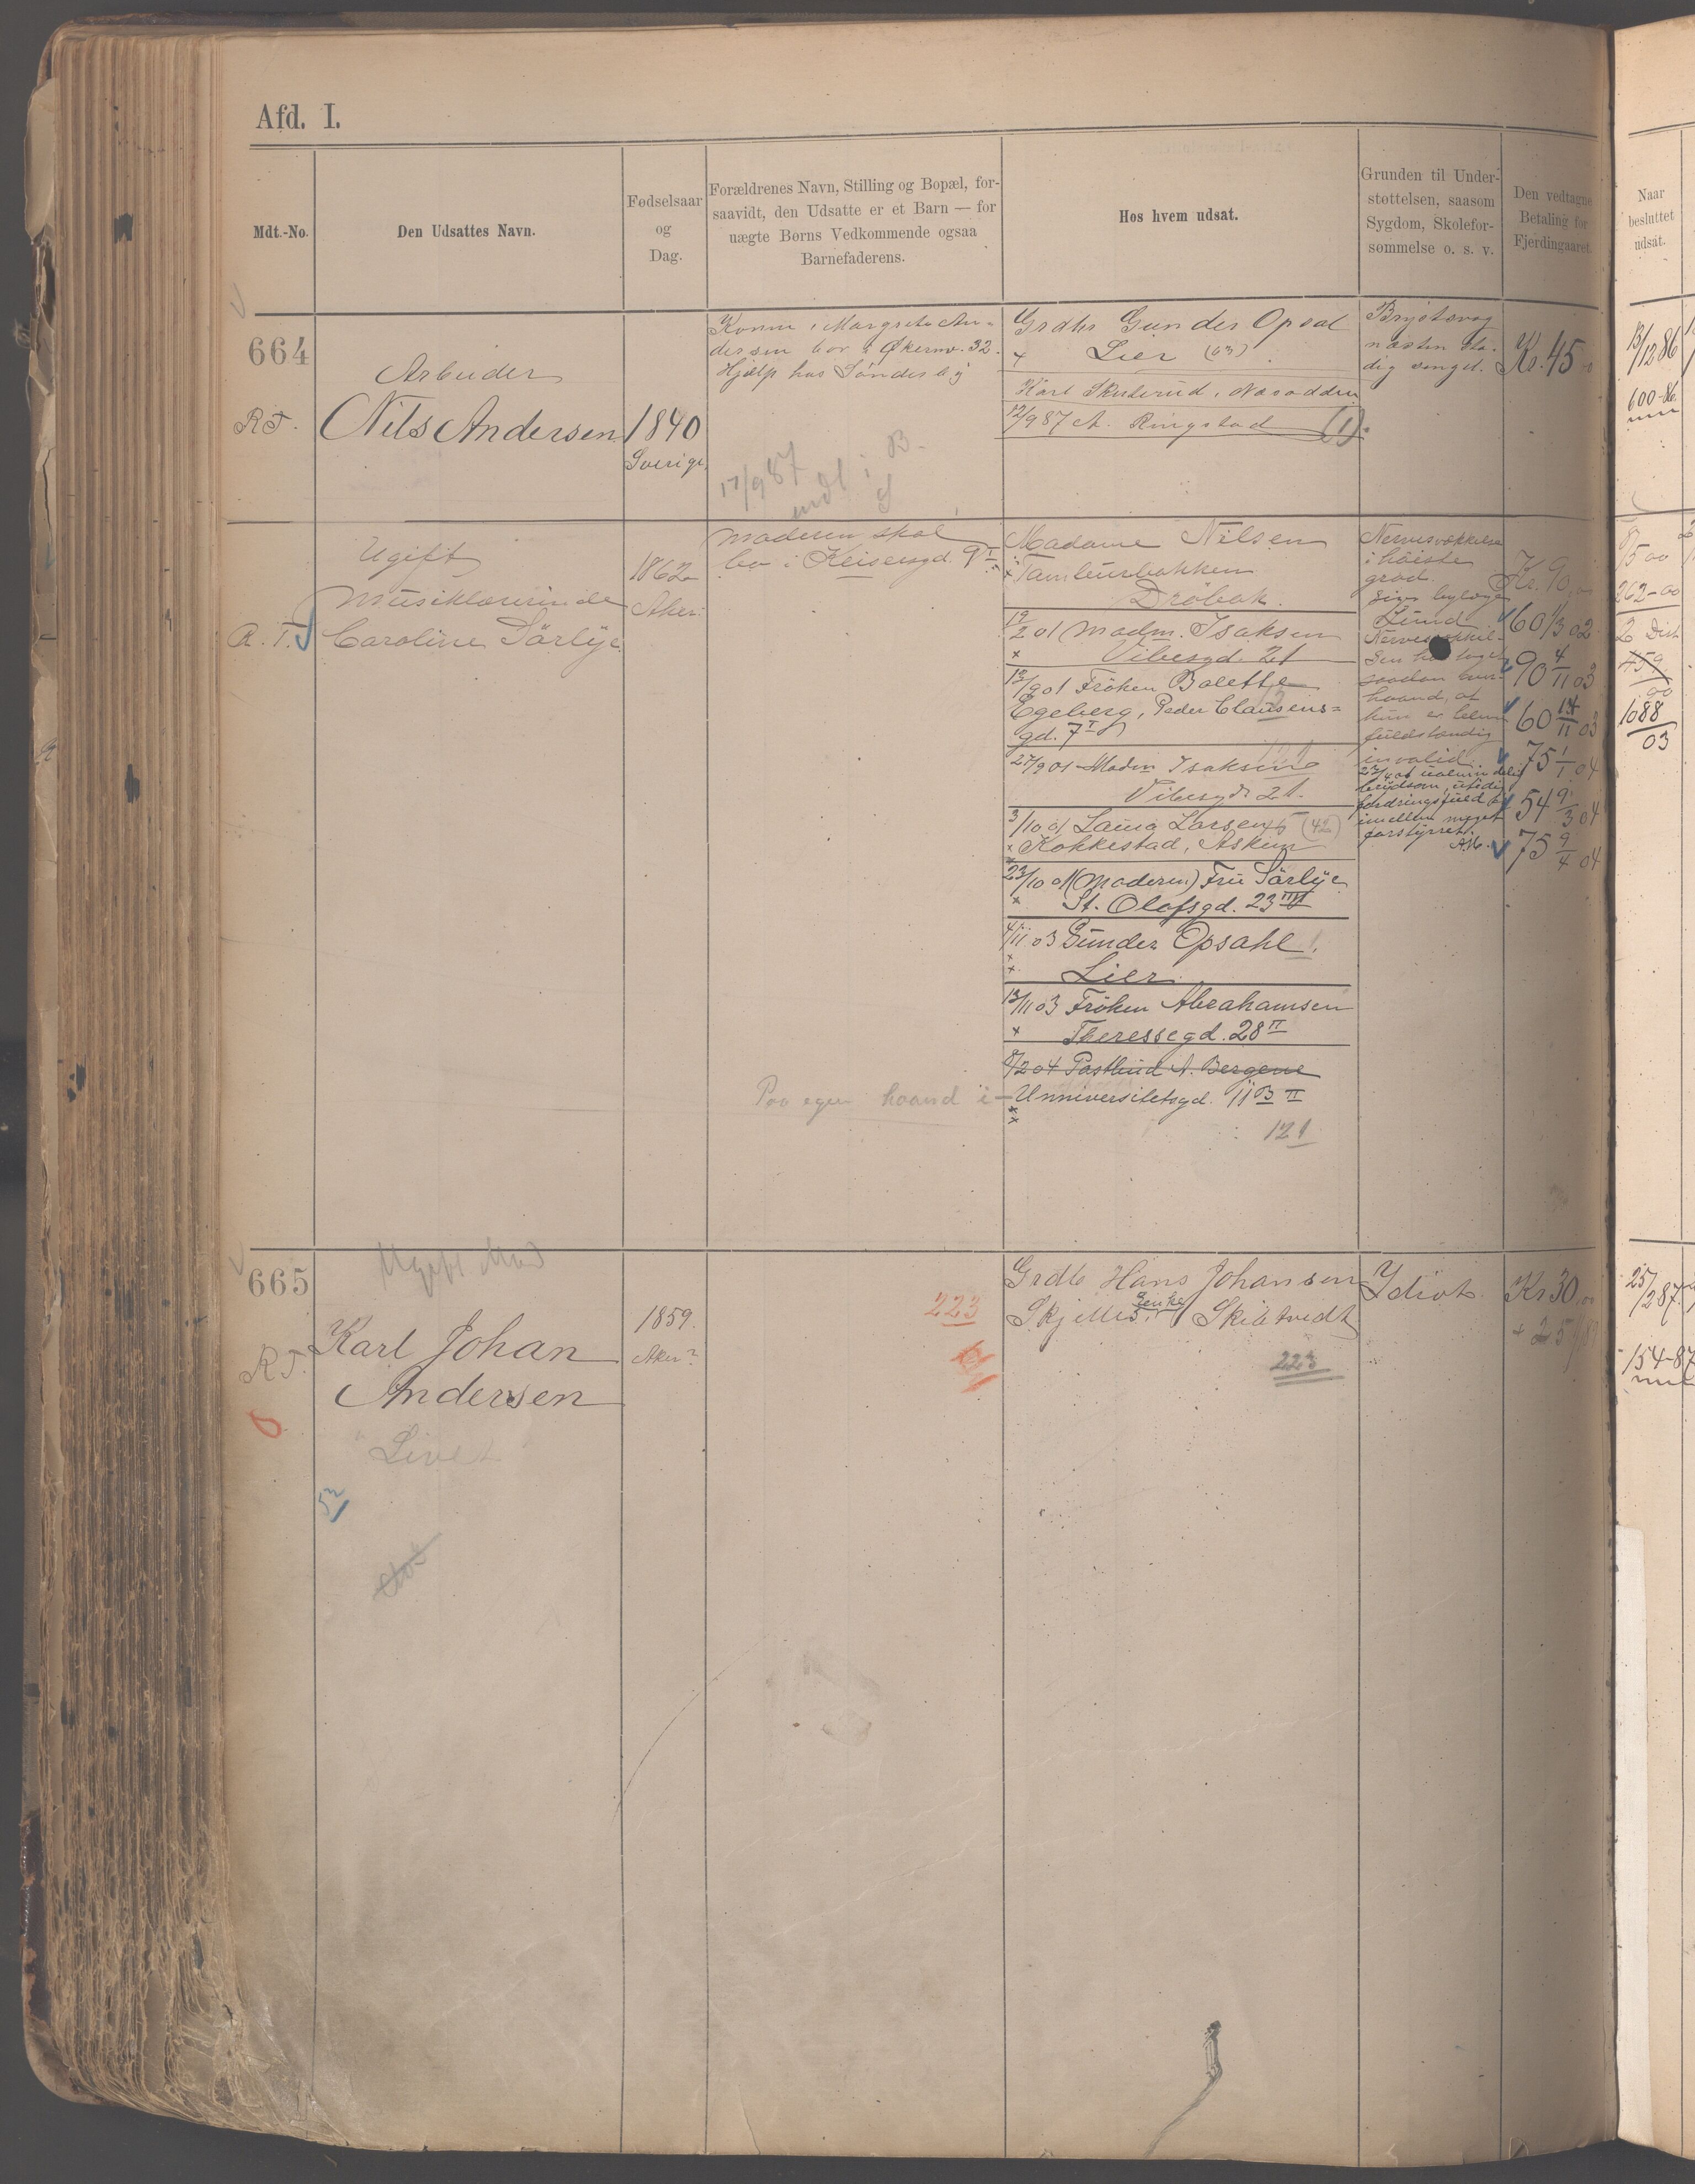 Afd. I.
Mdt.-No.
Den Udsattes Navn.
Fødselsaar
og
Dag.
Forældrenes Navn, Stilling og Bopæl, for-
saavidt, den Udsatte er et Barn — for
uægte Børns Vedkommende ogsaa
Barnefaderens.
Hos hvem udsat.
Grunden til Under-
støttelsen, saasom
Sygdom, Skolefor-
sømmelse o. s. v.
Den vedtagne
Betaling for
Fjerdingaaret.
Naar
besluttet
udsat.
664
R T.
Arbeider
Nils Andersen
1840
Sverige
Konen, Margrete An-
dersen bor i Økernv. 32.
Hjælp hos Sønderby
17/9 87
indl i B.
Grdbr Gunder Opsal
x Lier (63)
Karl Skuterud, Næsodden
12/9 87 A. Ringstad (1)
Brystsvag
næsten sta-
dig sengel.
Kr. 45
13/12 86
600-86
R. T.
Ugift
Musiklærerinde
Caroline Sørlye
1862
Aker.
Moderen skal
bo i Keisersgd. 9 I
Madame Nilsen
x Tamburbakken
Drøbak.
19/2 01 Madm. Isaksen
x Vibesgd. 21
12/9 01 Frøken Bolette
Egeberg, Peder Clausens=
gd. 7 I
27/9 01 Madm Isaksen
Vibesgd. 21.
3/10 01 Laura Larsen (42)
x Kokkestad, Askim
23/10 01 (Moderen) Fru Sørlye
x St. Olafsgd. 23 III
4/11 03 Gunder Opsahl,
x Lier.
13/11 03 Frøken Abrahamsen
x Theressegd. 28 II
8/2 04 Postbud A. Bergene
Paa egen haand i - Unniversitetsgd. 11 B II
121
Nervesvækkelse
i høieste
grad.
Lund
Nervesvækkel-
sen har taget
saadan over-
haand, at
hun er bleven
fuldstændig
invalid.
23/4 01 ualmindelig
brydsom, utidig
fordringsfuld og
imellem meget
forstyrret.
Kr. 90,00
60 1/3 02
90 4/11 03
60 14/11 03
75 1/1 04
54 9/3 04
75 9/4 04
8/5 00
262-00
2 Dist
459/00
1088/03
665
R T.
Ugift Mand
Karl Johan
Andersen
1859.
Aker?
223
Grdb Hans Johansen
Skjelles, Skibtvedt
223
Idiot
Kr 30,00
25/2 87
154-87